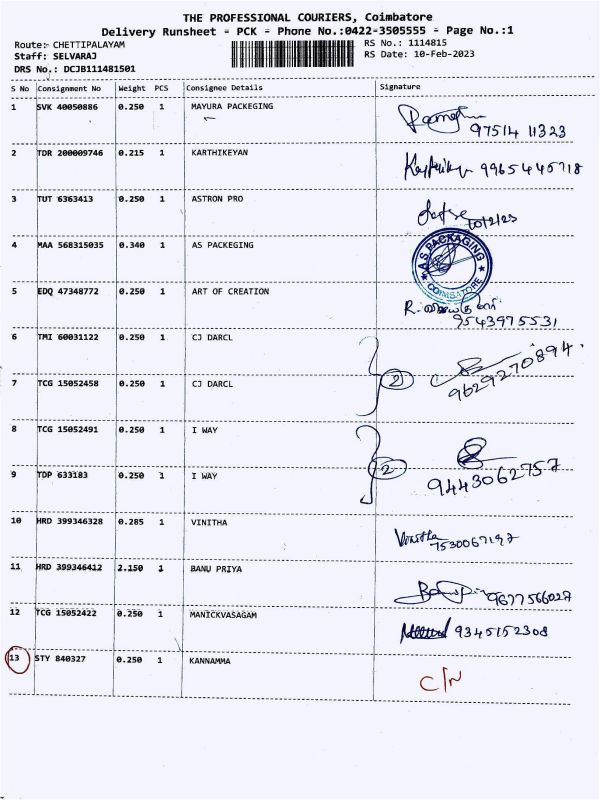 THE PROFESSIONAL COURIERS, Coimbatore
Delivery Runsheet - PCK - Phone No.:0422-3505555 - Page No.:1
Route:- CHETTIPALAYAM RS No.: 1114815
Staff: SELVARAJ RS Date: 10-Feb-2023
DRS No.: DCJB111481501
S No Consignment No Weight PCS Consignee Details Signature
1 SVK 40050886 0.250 1 MAYURA PACKEGING
97514 11323
2 TDR 200009746 0.215 1 KARTHIKEYAN
9965445718
3 TUT 6363413 0.250 1 ASTRON PRO
10/2/23
4 MAA 568315035 0.340 1 AS PACKEGING
AS PACKAGING
COIMBATORE
5 EDQ 47348772 0.250 1 ART OF CREATION
9543975531
6 TMI 60031122 0.250 1 CJ DARCL
7 TCG 15052458 0.250 1 CJ DARCL 2 9629270894
8 TCG 15052491 0.250 1 I WAY
9 TDP 633183 0.250 1 I WAY 2 9443062757
10 HRD 399346328 0.285 1 VINITHA
Vinitha 7530067197
11 HRD 399346412 2.150 1 BANU PRIYA
9677566027
12 TCG 15052422 0.250 1 MANICKVASAGAM
9345152308
13 STY 840327 0.250 1 KANNAMMA
C/N